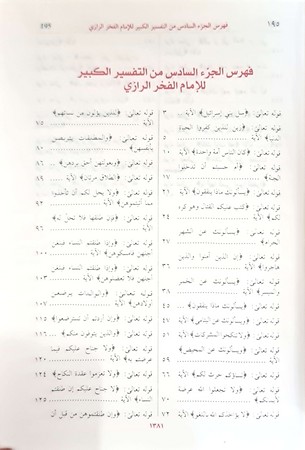 ١٩٥
فهرس الجزء السادس من التفسير الكبير للإمام الفخر الرازي
فهرس الجزء السادس من التفسير الكبير
للإمام الفخر الرازي
قوله تعالى: ﴿سل بني إسرائيل﴾ الآية ٣
قوله تعالى: ﴿زين للذين كفروا الحياة
الدنيا﴾ الآية
قوله تعالى: ﴿كان الناس أمة واحدة﴾ ١٠
قوله تعالى: ﴿أم حسبتم أن تدخلوا
الجنة﴾ ١٧
قوله تعالى: ﴿يسألونك ماذا ينفقون﴾ ٢١
قوله تعالى: ﴿كتب عليكم القتال وهو كره
لكم﴾ الآية ٢٤
قوله تعالى: ﴿يسألونك عن الشهر
الحرام﴾ ٢٧
قوله تعالى: ﴿إن الذين آمنوا والذين
هاجروا﴾ الآية
قوله تعالى: ﴿يسألونك عن الخمر
والميسر﴾
قوله تعالى: ﴿ويسألونك ماذا ينفقون﴾ ٤٥
قوله تعالى: ﴿ويسألونك عن اليتامى﴾ الآية ٤٧
قوله تعالى: ﴿ولا تنكحوا المشركات﴾ الآية ٥١
قوله تعالى: ﴿ويسألونك عن المحيض﴾
الآية
قوله تعالى: ﴿نساؤكم حرث لكم﴾ الآية ٦٦
قوله تعالى: ﴿ولا تجعلوا الله عرضة
لأيمانكم﴾ ٧٠
قوله تعالى: ﴿لا يؤاخذكم الله باللغو﴾ الآية ٧٢
قوله تعالى: ﴿للذين يؤلون من نسائهم﴾
الآية ٧٥
قوله تعالى: ﴿والمطلقات يتربصن
بأنفسهن﴾ ٨٠
قوله تعالى: ﴿وبعولتهن أحق بردهن﴾ ٨٦
قوله تعالى: ﴿الطلاق مرتان﴾ الآية ٨٩
قوله تعالى: ﴿ولا يحل لكم أن تأخذوا
مما آتيتموهن﴾ الآية ٩٢
قوله تعالى: ﴿فإن طلقها فلا تحل له﴾
الآية ٩٦
قوله تعالى: ﴿وإذا طلقتم النساء فبلغن
أجلهن فأمسكوهن﴾ ١٠٠
قوله تعالى: ﴿وإذا طلقتم النساء فبلغن
أجلهن فلا تعضلوهن﴾ الآية ١٠٣
قوله تعالى: ﴿والوالدات يرضعن
أولادهن﴾ ١٠٧
قوله تعالى: ﴿وإن أردتم أن تسترضعوا﴾ ١١٥
قوله تعالى: ﴿والذين يتوفون منكم﴾ ١١٦
قوله تعالى: ﴿ولا جناح عليكم فيما
عرضتم به﴾ الآية ١٢٠
قوله تعالى: ﴿ولا تعزموا عقدة النكاح﴾ ١٢٤
قوله تعالى: ﴿لا جناح عليكم إن طلقتم
النساء﴾ الآية ١٢٥
قوله تعالى: ﴿وإن طلقتموهن من قبل أن
١٣٨١